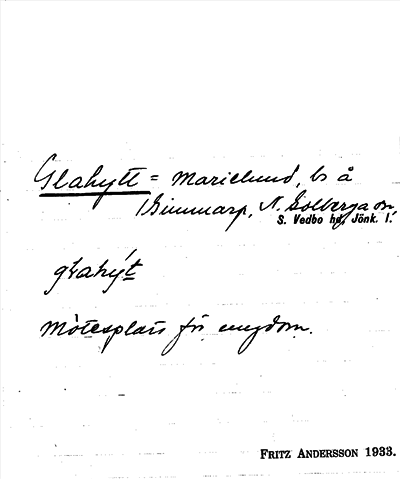 Glahytt = Marielund, ls å
Bimmarp, N. Solberga sn,
S. Vedbo hd, Jönk. l.
glahýt
Mötesplats för ungdom.
FRITZ ANDERSSON 1933.